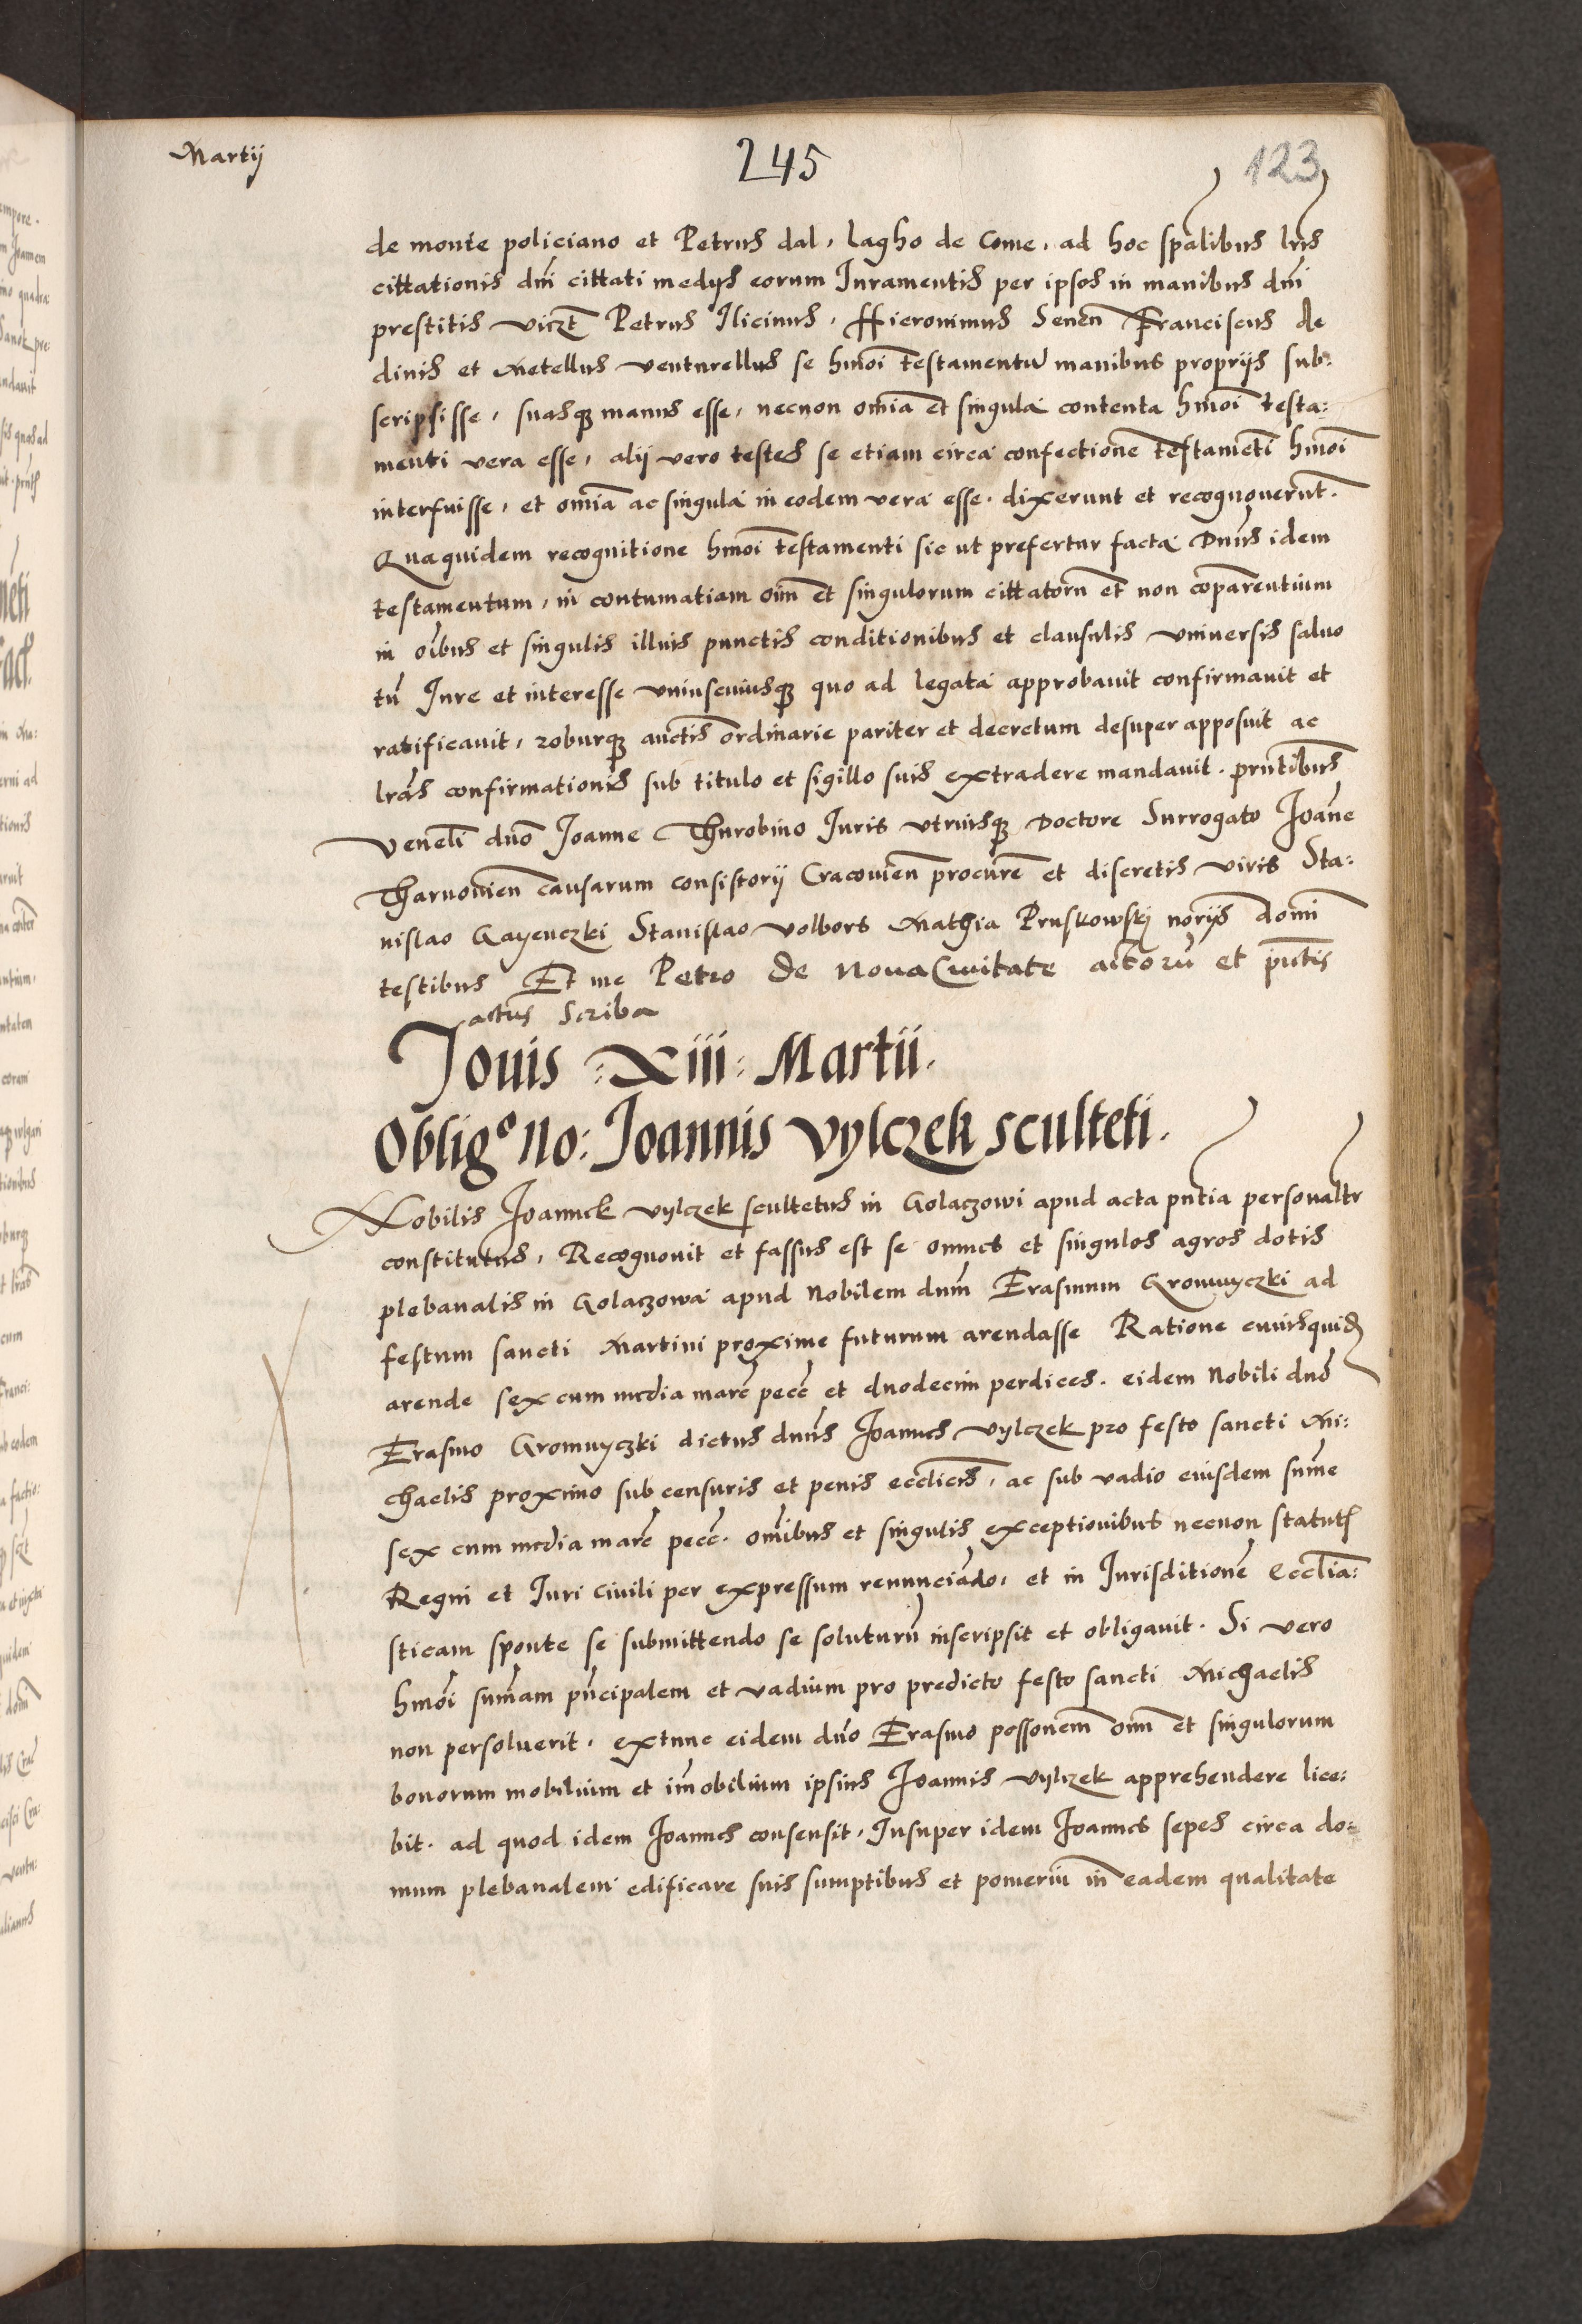 Martij
245
123
de monte policiano et Petrus dal, lagho de Come, ad hoc spalibus lris
cittationis dni cittati medijs eorum Iuramentis per ipsos in manibus dni
prestitis viczt Petrus Ilicinus, Hieronimus Senen Franciscus de
dinis et Metellus venturellus se hmoi testamentu manibus proprijs sub:
scripsisse, suasq manus esse, necnon omia et singula contenta hmoi testa:
menti vera esse, alij vero testes se etiam circa confectione testameti hmoi
interfuisse, et omia ac singula in eodem vera esse. dixerunt et recognouerut.
Qua quidem recognitione hmoi testamenti sic ut prefertur facta Dnus idem
testamentum, in contumatiam oim et singulorum cittatoru et non coparentium
in oibus et singulis illius punctis conditionibus et clausulis vniuersis saluo
tn Iure et interesse vniuscuiusq quo ad legata approbauit confirmauit et
ratificauit, roburq auctis ordinarie pariter et decretum desuper apposuit ac
lras confirmationis sub titulo et sigillo suis extradere mandauit. prntibus
Veneli dno Joanne Thurobino Iuris vtriusq Doctore Surrogato Joane
Tharnouien causarum consistorij Cracouien procure et discretis viris Sta:
nislao Gayenczki Stanislao Volbors Mathia Pruskowskj norijs domi
testibus Et me Petro de Noua Ciuitate actoru et pntis
actus Scriba
Jouis :Xiii: Martii.
Obligo No: Joannis Vylczek sculteti.
Nobilis Joannes Vylczek scultetus in Golaczowi apud acta pntia personaltr
constitutus, Recognouit et fassus est se omnes et singulos agros dotis
plebanalis in Golaczowa apud Nobilem dnum Erasmum Gromnyczki ad
festum sancti Martini proxime futurum arendasse Ratione cuiusquid
arende sex cum media marc pecc et duodecim perdices. eidem Nobili dno
Erasmo Gromnyczki dictus dnus Joannes Vylczek pro festo sancti Mi:
chaelis proximo sub censuris et penis ecclicis, ac sub vadio eiusdem sume
sex cum media marc pecc. omibus et singulis exceptionibus necnon statut
Regni et Iuri Ciuili per expressum renunciado, et in Iurisditione Ecclia:
sticam sponte se submittendo se soluturu inscripsit et obligauit. Si vero
hmoi sumam pncipalem et vadium pro predicto festo sancti Michaelis
non persoluerit, extunc eidem dno Erasmo possonem oim et singulorum
bonorum mobilium et imobilium ipsius Joannis Vylczek apprehendere lice:
bit. ad quod idem Joannes consensit. Insuper idem Joannes sepes circa do:
mum plebanalem edificare suis sumptibus et pomeriu in eadem qualitate